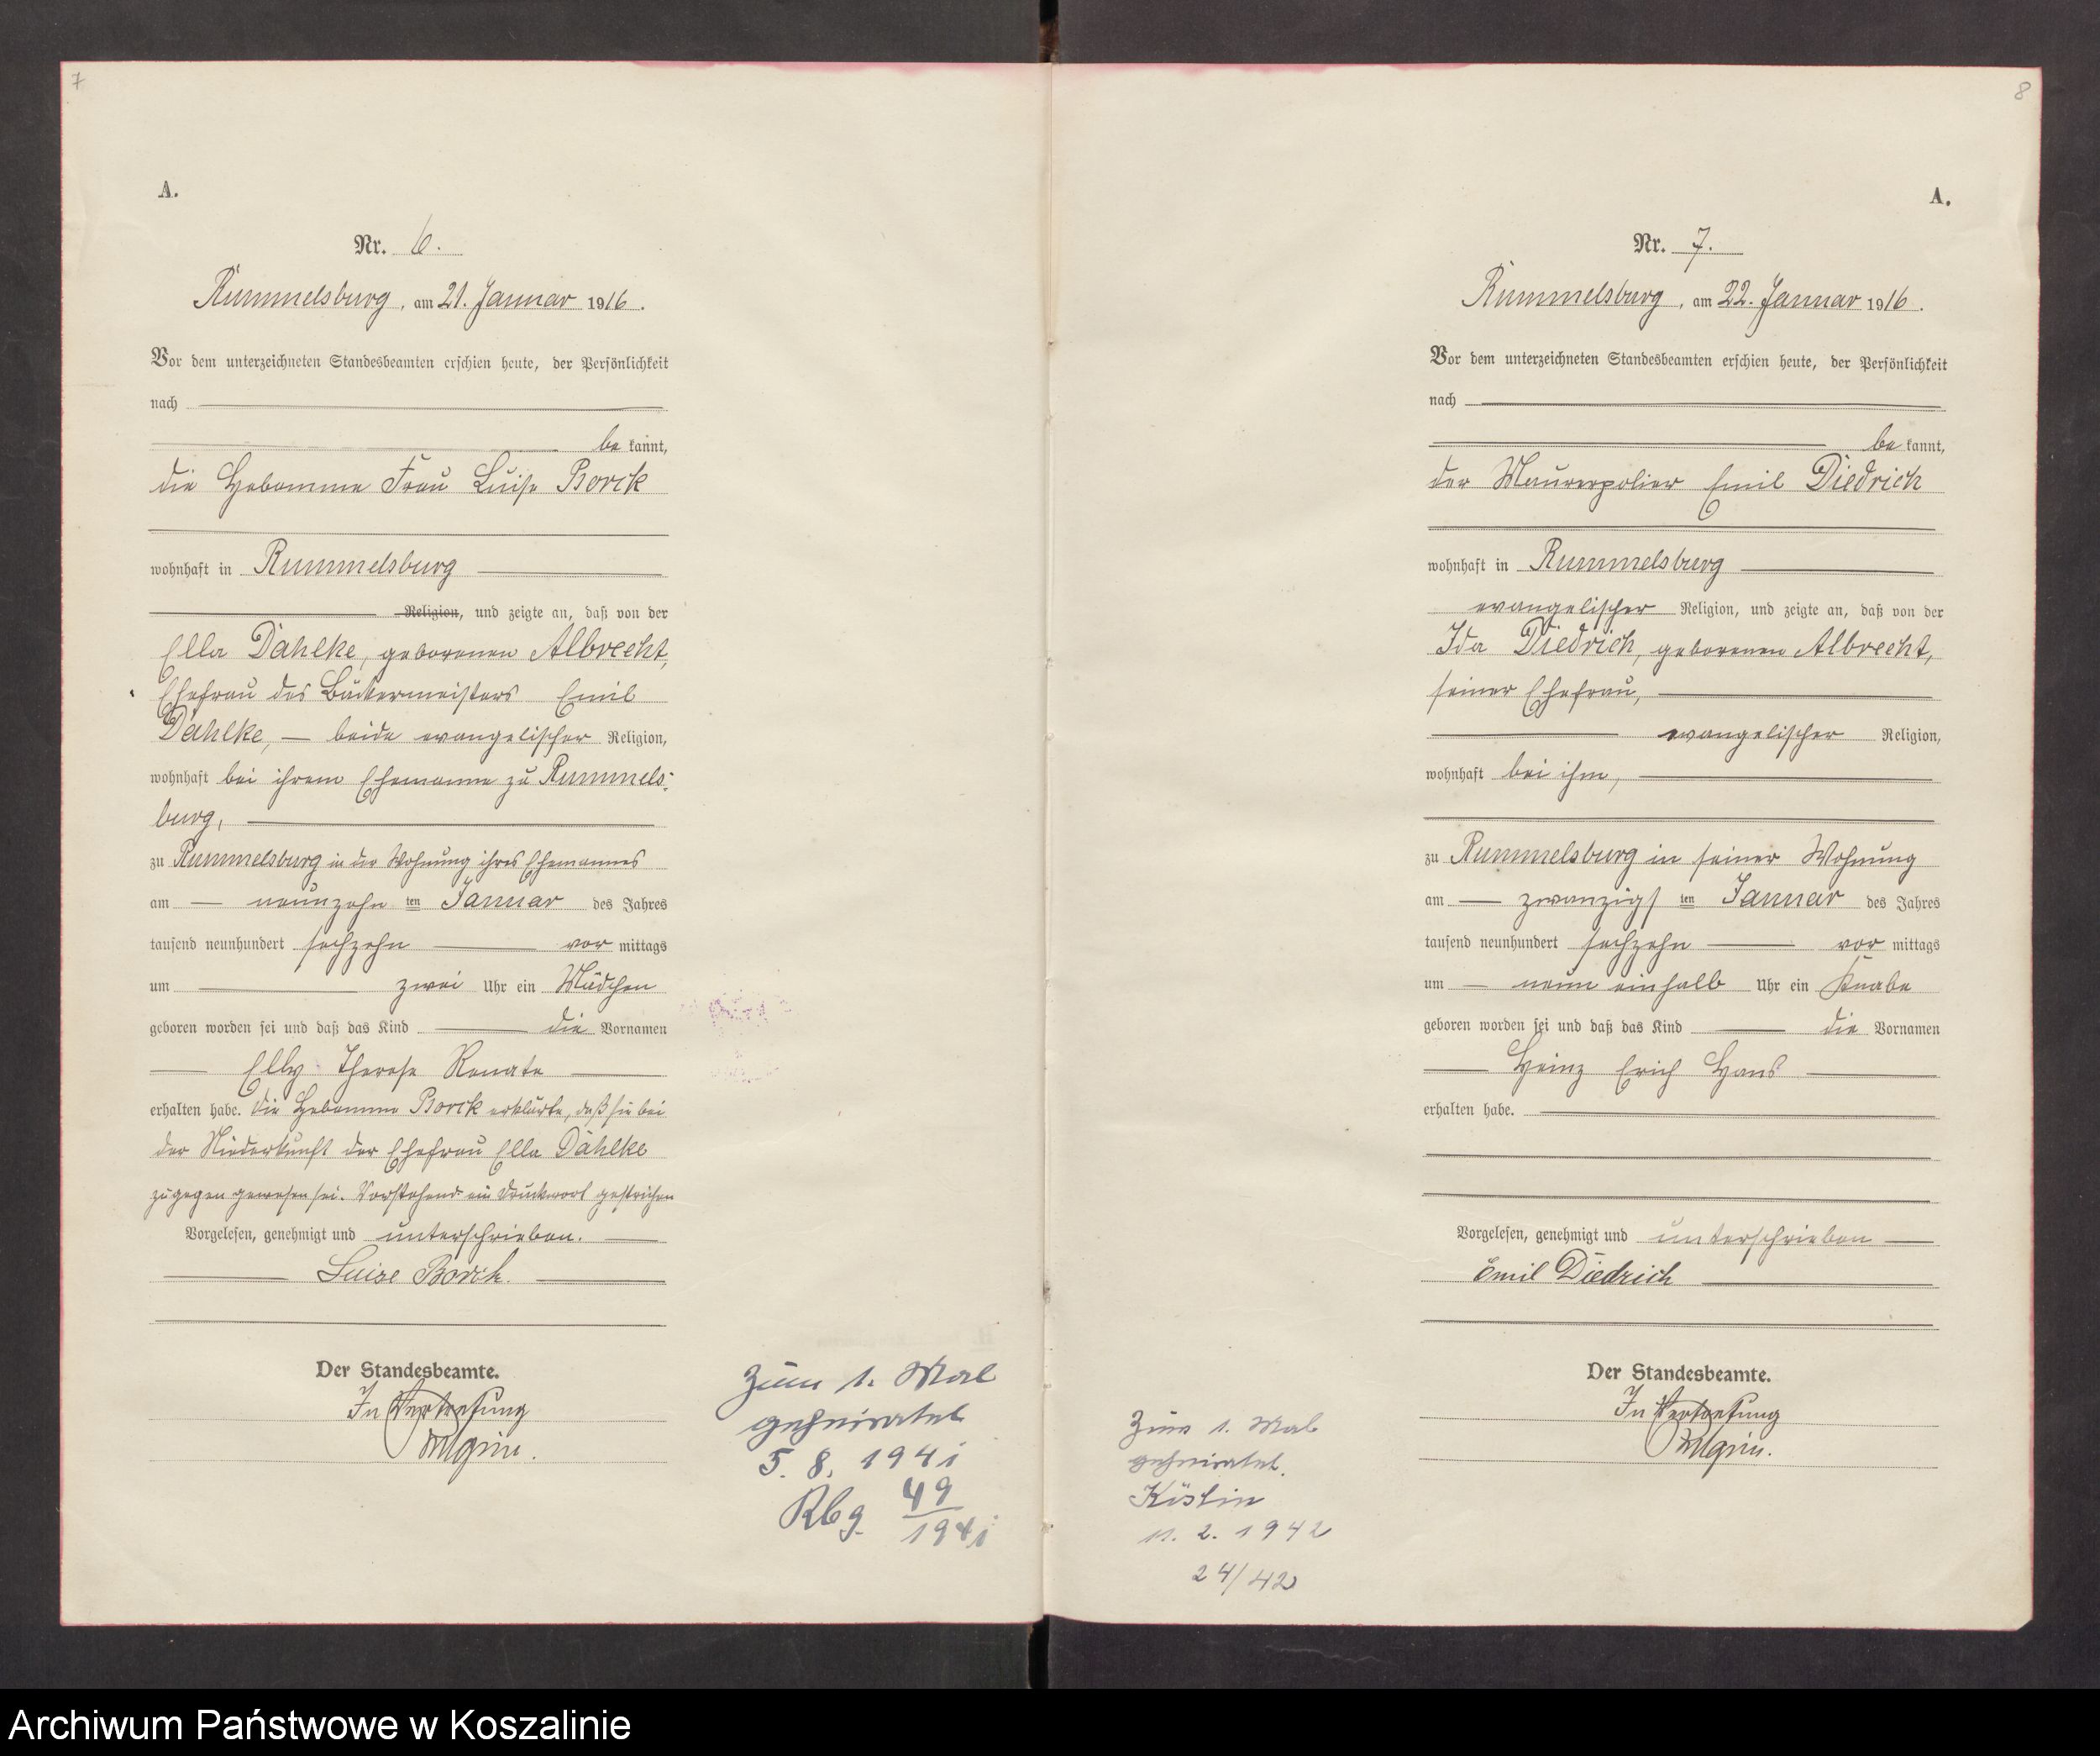 7
A.
Nr. 6.
Rummelsburg, am 21. Januar 1916.
Vor dem unterzeichneten Standesbeamten erschien heute, der Persönlichkeit
nach
be kannt,
die Hebamme Frau Luise Borck
wohnhaft in Rummelsburg
Religion, und zeigte an, daß von der
Ella Dahlke, geborenen Albrecht,
Ehefrau des Bäckermeisters Emil
Dahlke, — beide evangelischer Religion,
wohnhaft bei ihrem Ehemanne zu Rummels-
burg,
zu Rummelsburg in der Wohnung ihres Ehemannes
am — neunzehn ten Januar des Jahres
tausend neunhundert sechzehn vor mittags
um zwei Uhr ein Mädchen
geboren worden sei und daß das Kind die Vornamen
Elly Therese Renate
erhalten habe. Die Hebamme Borck erklärte, daß sie bei
der Niederkunft der Ehefrau Ella Dahlke
zugegen gewesen sei. Vorstehend ein Druckwort gestrichen
Vorgelesen, genehmigt und unterschrieben.
Luise Borck.
Der Standesbeamte.
In Vertretung
Zum 1. Mal
geheiratet
5. 8. 1941
Rbg. 49
1941
8
A.
Nr. 7.
Rummelsburg, am 22. Januar 1916.
Vor dem unterzeichneten Standesbeamten erschien heute, der Persönlichkeit
nach
be kannt,
der Maurerpolier Emil Diedrich
wohnhaft in Rummelsburg
evangelischer Religion, und zeigte an, daß von der
Ida Diedrich, geborenen Albrecht,
seiner Ehefrau,
evangelischer Religion,
wohnhaft bei ihm,
zu Rummelsburg in seiner Wohnung
am — zwanzigs ten Januar des Jahres
tausend neunhundert sechzehn vor mittags
um — neun einhalb Uhr ein Knabe
geboren worden sei und daß das Kind die Vornamen
Heinz Erich Hans
erhalten habe.
Vorgelesen, genehmigt und unterschrieben
Emil Diedrich
Der Standesbeamte.
In Vertretung
Zum 1. Mal
geheiratet.
Köslin
11. 2. 1942
24/42
Archiwum Państwowe w Koszalinie